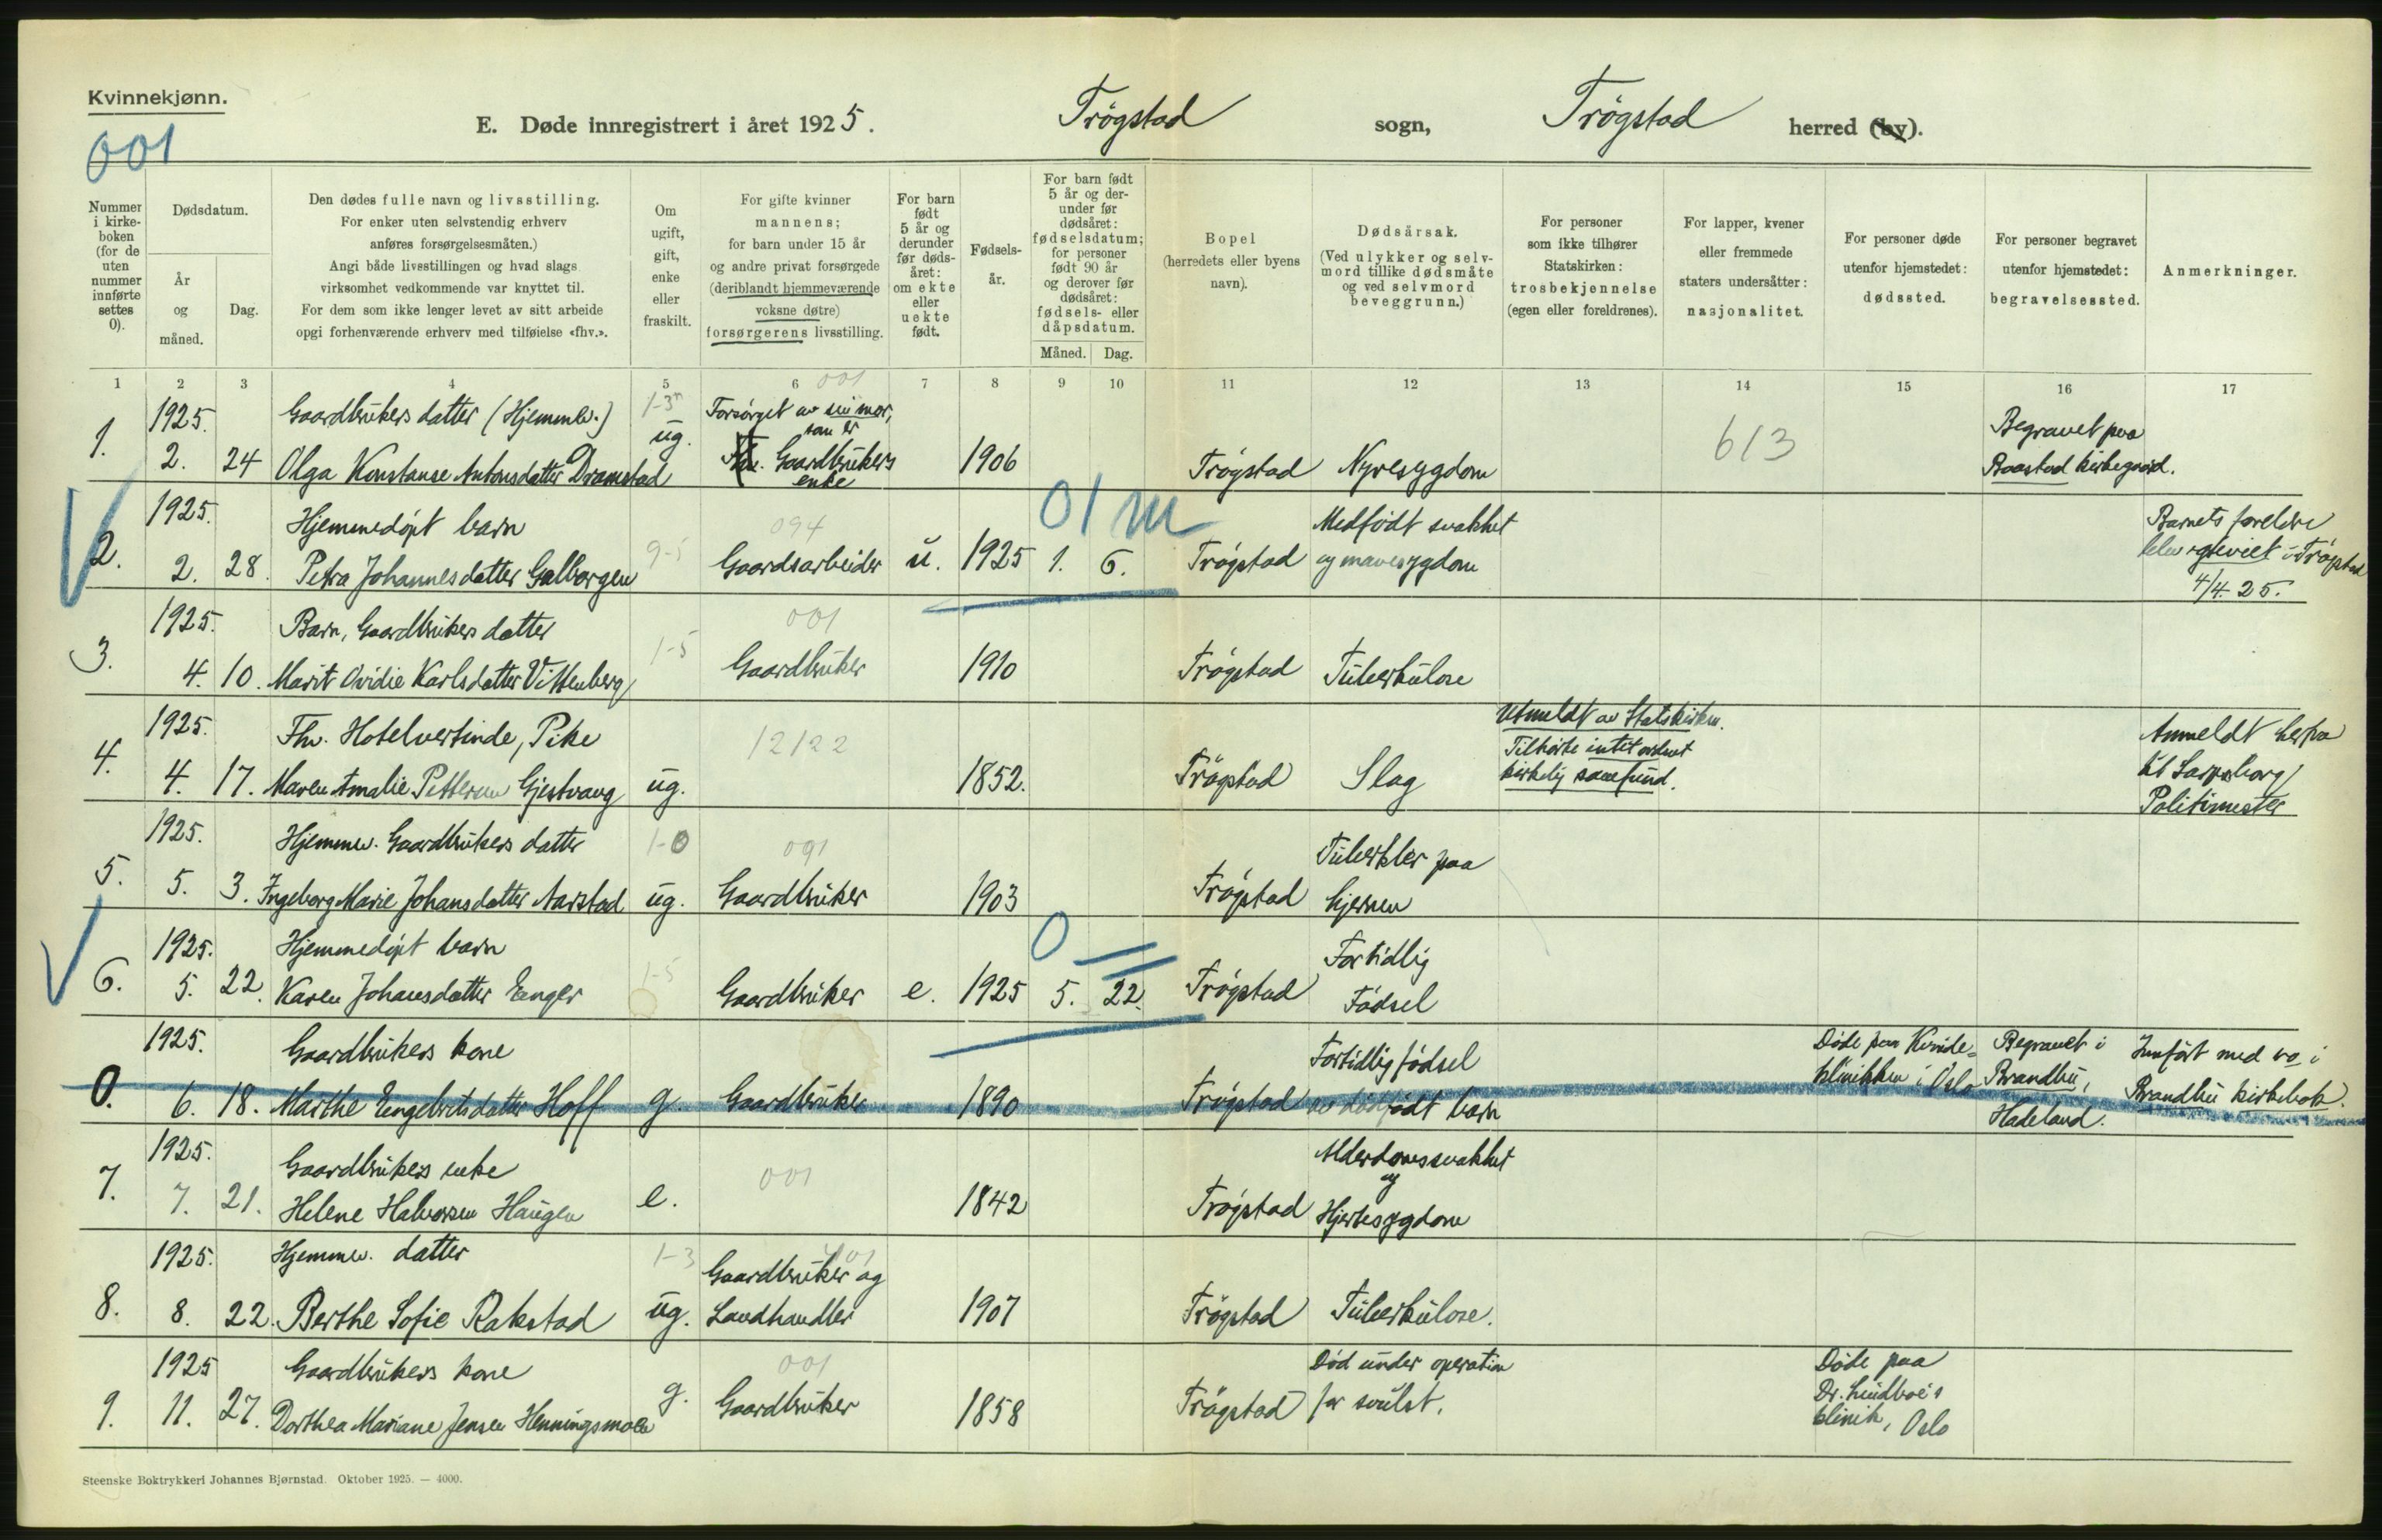 Kvinnekjønn.
001
E. Døde innregistrert i året 1925. Trøgstad sogn, Trøgstad herred (by).
Nummer i kirke-boken (for de uten nummer innførte settes 0).
Dødsdatum.
År og måned.
Dag.
Den dødes fulle navn og livsstilling.
For enker uten selvstendig erhverv
anføres forsørgelsesmåten.)
Angi både livsstillingen og hvad slags
virksomhet vedkommende var knyttet til.
For dem som ikke lenger levet av sitt arbeide
opgi forhenværende erhverv med tilføielse «fhv.».
Om ugift, gift, enke eller fraskilt.
For gifte kvinner
mannens;
for barn under 15 år
og andre privat forsørgede
(deriblandt hjemmeværende
voksne døtre)
forsørgerens livsstilling.
For barn født 5 år og derunder før døds-året: om ekte eller uekte født.
Fødsels-år.
For barn født 5 år og der-under før dødsåret: fødselsdatum; for personer født 90 år og derover før dødsåret: fødsels- eller dåpsdatum.
Måned. Dag.
Bopel
(herredets eller byens
navn).
Dødsårsak.
(Ved ulykker og selv-
mord tillike dødsmåte
og ved selvmord
beveggrunn.)
For personer
som ikke tilhører
Statskirken:
trosbekjennelse
(egen eller foreldrenes).
For lapper, kvener
eller fremmede
staters undersåtter:
nasjonalitet.
For personer døde
utenfor hjemstedet:
dødssted.
For personer begravet
utenfor hjemstedet:
begravelsessted.
Anmerkninger.
1 2 3 4 5 6 7 8 9 10 11 12 13 14 15 16 17
001
1925. Gaardbrukers datter (Hjemmev.) 1-3 Forsørget av sin mor, Begravet paa
1. som er 613
2. 24 Olga Konstanse Antonsdatter Dramstad ug. Gaardbrukers 1906 Trøgstad Nyresygdom Baastad kirkegaard.
enke
1925. Hjemmedøpt barn 094 01 m Medfødt svakhet Barnets foreldre
2. 2. 28. Petra Johannesdatter Galborgen 9-5 Gaardsarbeider u. 1925 1. 6. Trøgstad og mavesygdom blev gteviet i Trøgstad
4/4. 25.
1925. Barn, Gaardbrukers datter 001
3. 4. 10. Marit Ovidie Karlsdatter Vittenberg 1-5 Gaardbruker 1910 Trøgstad Tuberkulose
1925. Fhv. Hotelvertinde, Pike 12122 Utmeldt av Statskirken. Anmeldt herfra
4. Tilhørte intet ordnet til Sarpsborg
4. 17. Maren Amalie Pettersen Gjestvang ug. 1852. Trøgstad Slag kirkelig samfund. Politimester
1925. Hjemmev. Gaardbrukers datter 1-0 001 Tuberkler paa
5. 5. 3. Ingeborg Marie Johansdatter Aarstad ug. Gaardbruker 1903 Trøgstad hjernen
1925. Hjemmedøpt barn 0 Fortidlig
6. 5. 22. Karen Johansdatter Enger 1-5 Gaardbruker e. 1925 5. 22. Trøgstad Fødsel
1925. Gaardbrukers kone Fortidlig fødsel Døde paa Kvinde- Begravet i Innført med no i
0. 6. 18. Marthe Engebretsdatter Hoff g. Gaardbruker 1890 Trøgstad av dødfødt barn klinikken i Oslo Brandbu, Brandbu kirkebok.
Hadeland.
1925. Gaardbrukers enke 001 Alderdomssvakhet
7. og
7. 21. Helene Halvorsen Haugen e. 1842 Trøgstad Hjertesygdom
1925. Hjemmev. datter 1-3 001 Gaardbruker og
8. 8. 22. Berthe Sofie Rakstad ug. Landhandler 1907 Trøgstad Tuberkulose.
1925 Gaardbrukers kone 001 Død under operation Døde paa
9. 11. 27. Dorthea Mariane Jensen Henningsmoen g. Gaardbruker 1858 Trøgstad for svulst. Dr. Lindboe's
klinik, Oslo
Steenske Boktrykkeri Johannes Bjørnstad. Oktober 1925. — 4000.